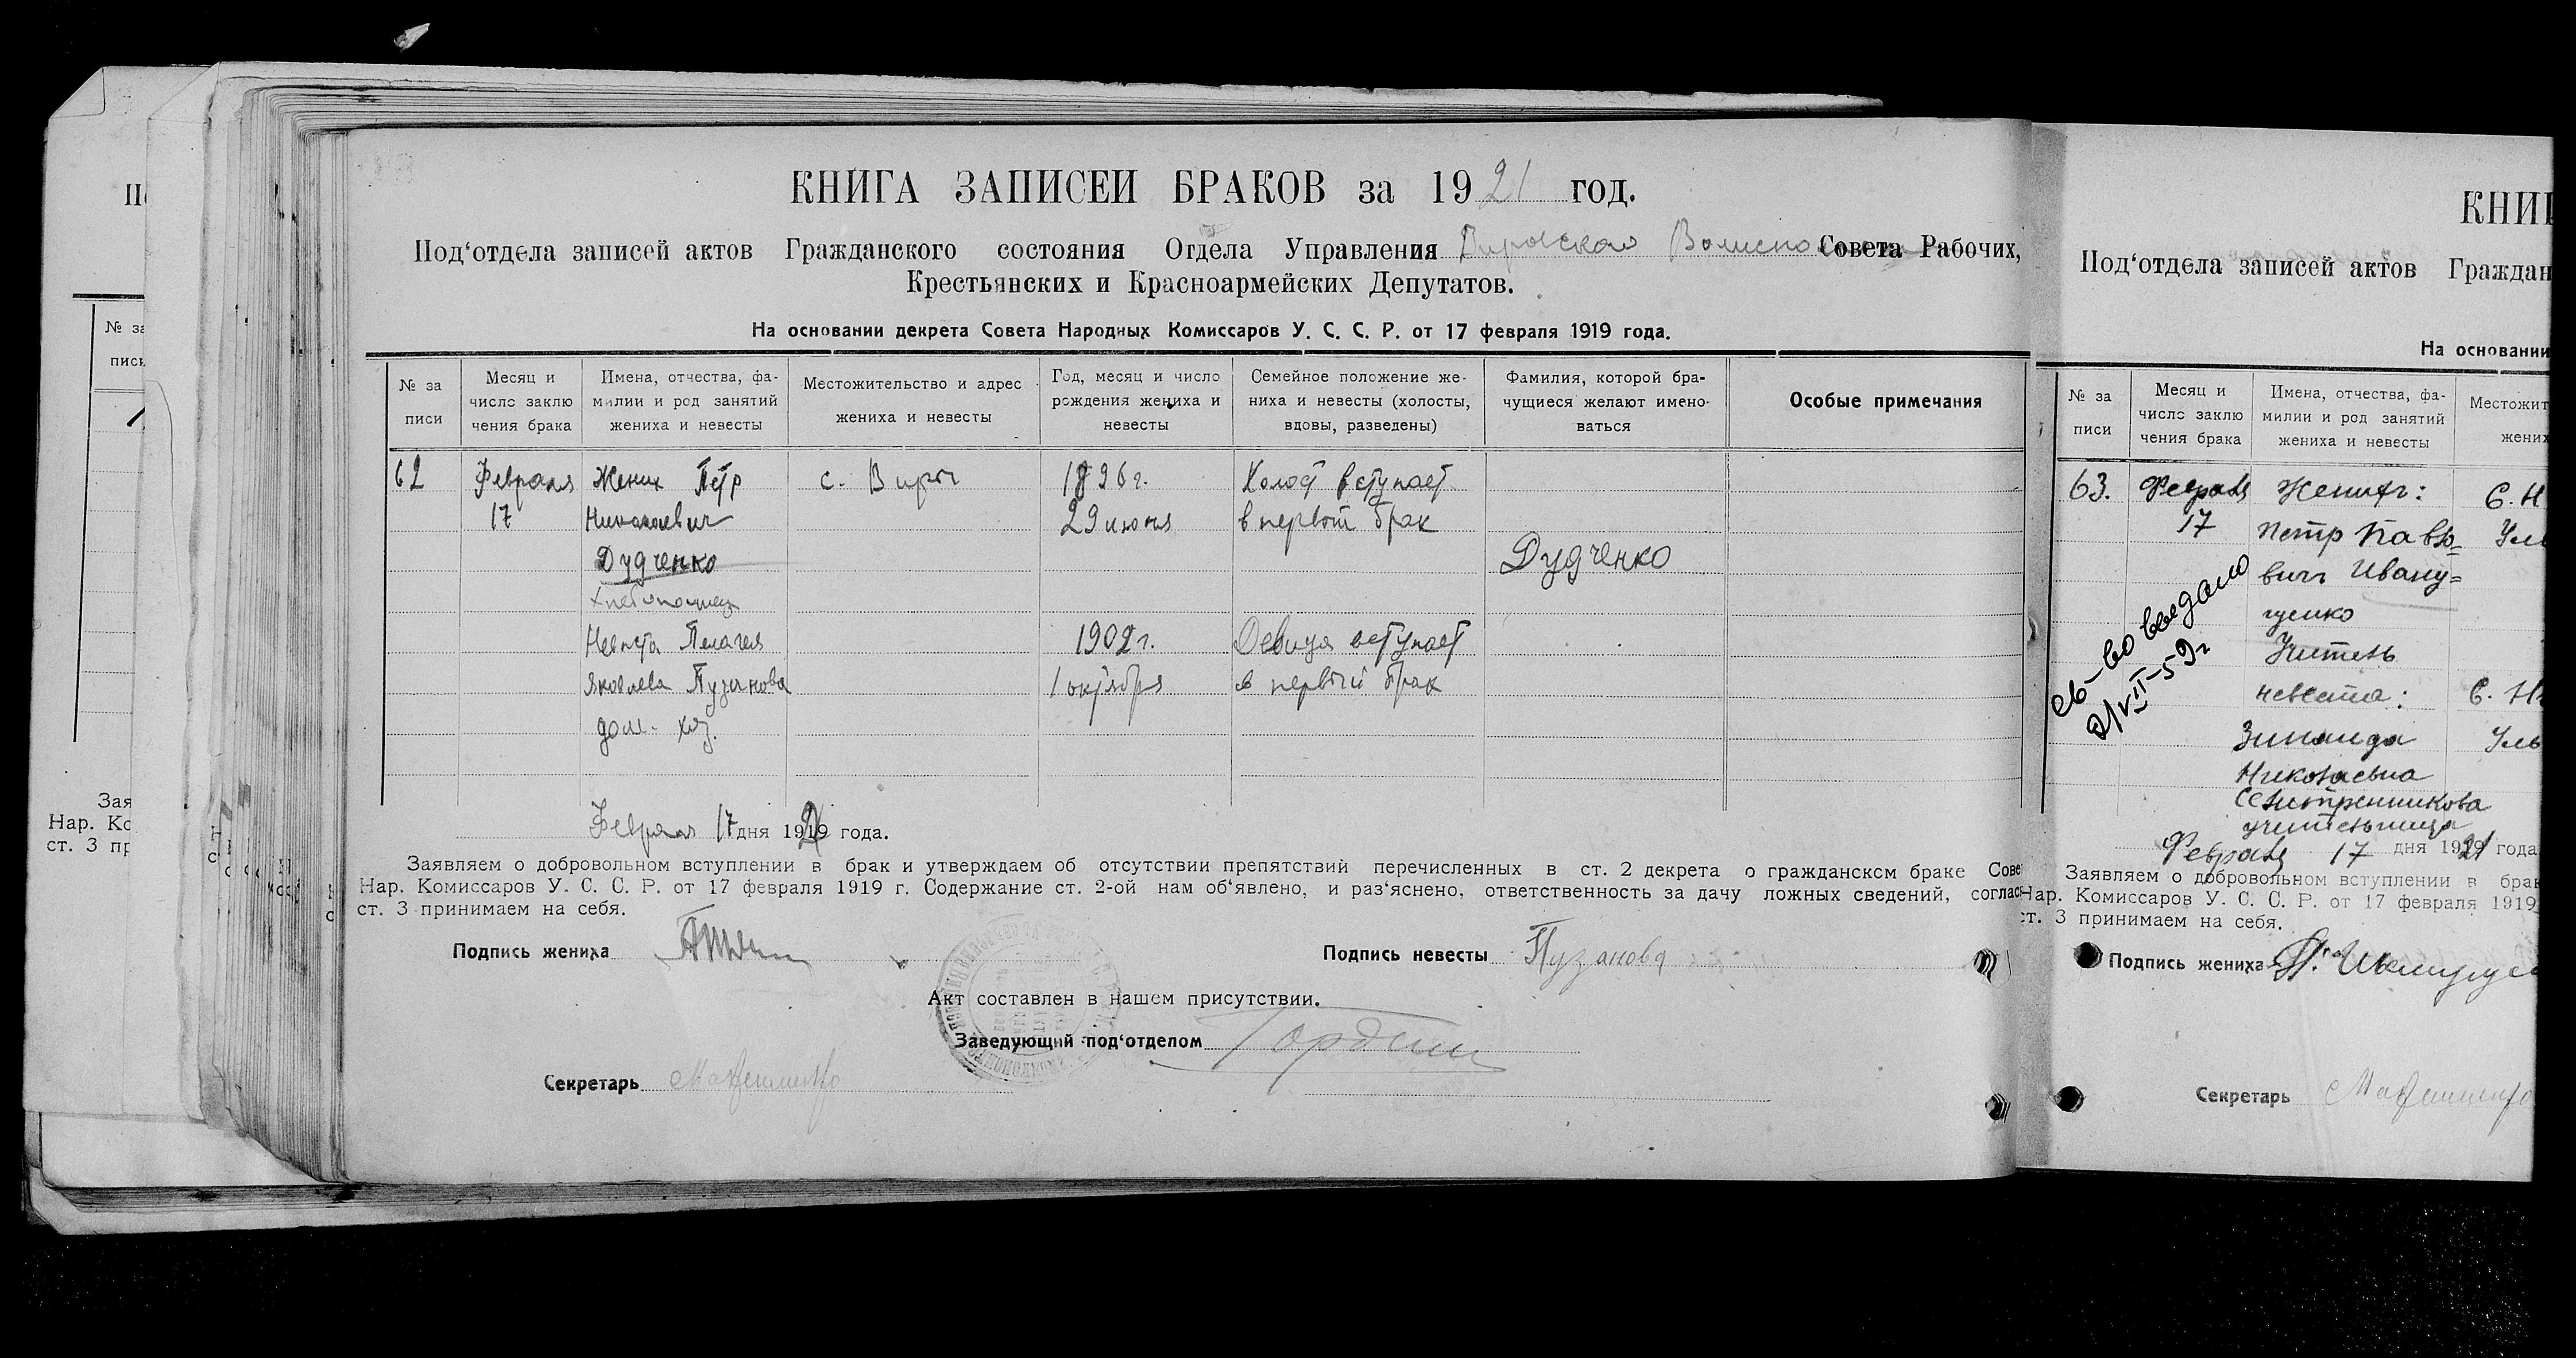 КНИГА ЗАПИСЕИ БРАКОВ за 1921 год.
Под‘отдела записей актов Гражданского состояния Отдела Управления Совета Рабочих,
Крестьянских и Красноармейских Депутатов.
На основании декрета Совета Народных Комиссаров У. С. С. Р. от 17 февраля 1919 года.
№ за писи
Месяц и число заклю чения брака
Имена, отчества, фа- милии и род занятий жениха и невесты
Местожительство и адрес жениха и невесты
Год, месяц и число рождения жениха и невесты
Семейное положение же- ниха и невесты (холосты, вдовы, разведены)
Фамилия, которой бра- чущиеся желают имено- ваться
Особые примечания
62 Февраля Жених Петр с. Виры 1896 г. Холост вступает
17 Николаевич 29 июня в первый брак
Дудченко Дудченко
Невеста Пелагея 1902 г. Девица вступает
Яковлева Пузанова 1 октября в первый брак
дом. хоз.
Февраля 17 дня 1919 года.
Заявляем о добровольном вступлении в брак и утверждаем об отсутствии препятствий перечисленных в ст. 2 декрета о гражданском браке Сове
Нар. Комиссаров У. С. С. Р. от 17 февраля 1919 г. Содержание ст. 2-ой нам об‘явлено, и раз‘яснено, ответственность за дачу ложных сведений, соглас
ст. 3 принимаем на себя.
Подпись жениха
Подпись невесты Пузанова
Акт составлен в нашем присутствии.
Заведующий под‘отделом
Секретарь
КНИГ
Под‘отдела записей актов Граждан
На основании
№ за писи
Месяц и число заклю чения брака
Имена, отчества, фа- милии и род занятий жениха и невесты
Местожит жених
63. Февраля Жених: С. Н
17 Петр Павло- Ули
вич Ивану-
Учитель
невеста: С. Н
Зинаида Уль
Николаевна
учительница
св-во выдано
Февраля 17 дня 1921 года
Заявляем о добровольном вступлении в брак
Нар. Комиссаров У. С. С. Р. от 17 февраля 1919
ст. 3 принимаем на себя.
Подпись жениха
Секретарь
№ за
писи
Зая
Нар. Ко
ст. 3 пр